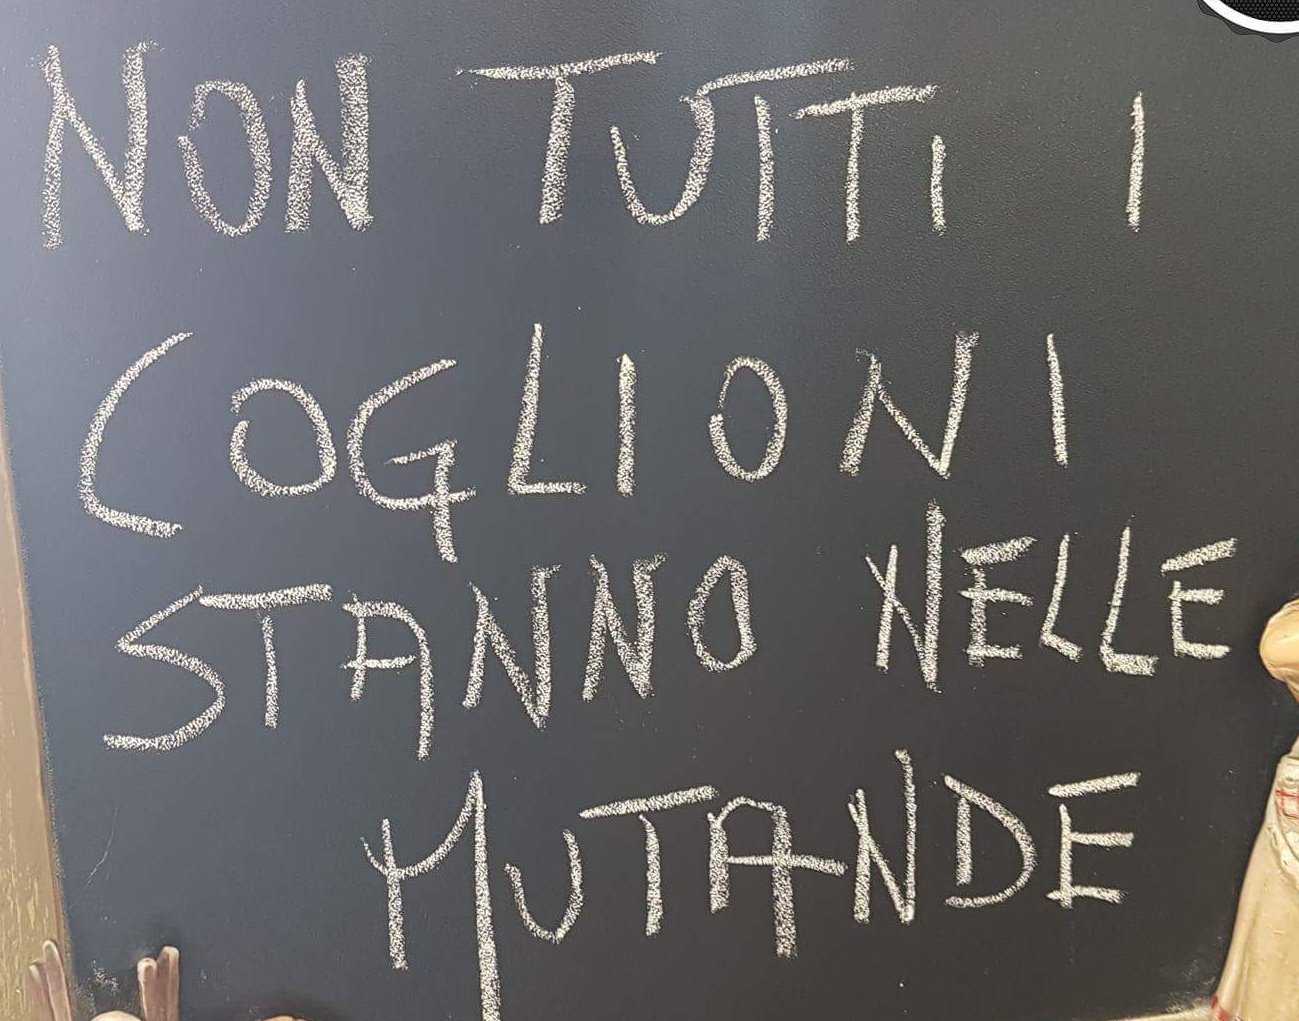 NON TUTTI I
COGLIONI
STANNO NELLE
MUTANDE